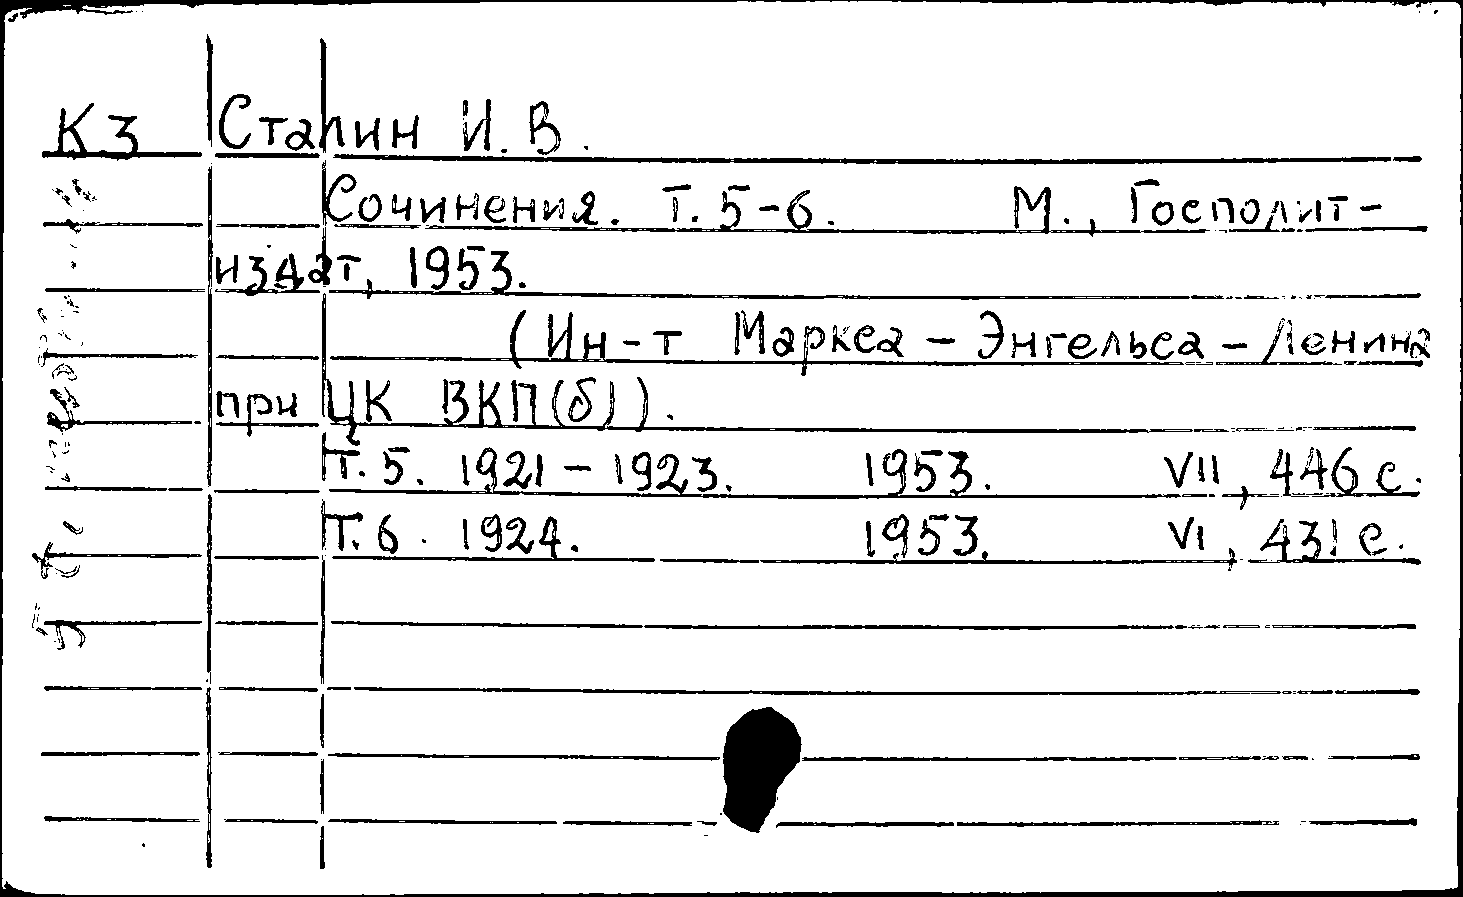 К3 Сталин И. В.
Сочинения. Т. 5-6. М., Госполит-
издат, 1953.
(Ин-т Маркса - Энгельса - Ленина
при ЦК ВКП(б)).
Т. 5. 1921 - 1923. 1953. VII, 446 с.
Т. 6. 1924. 1953. VI, 431 с.